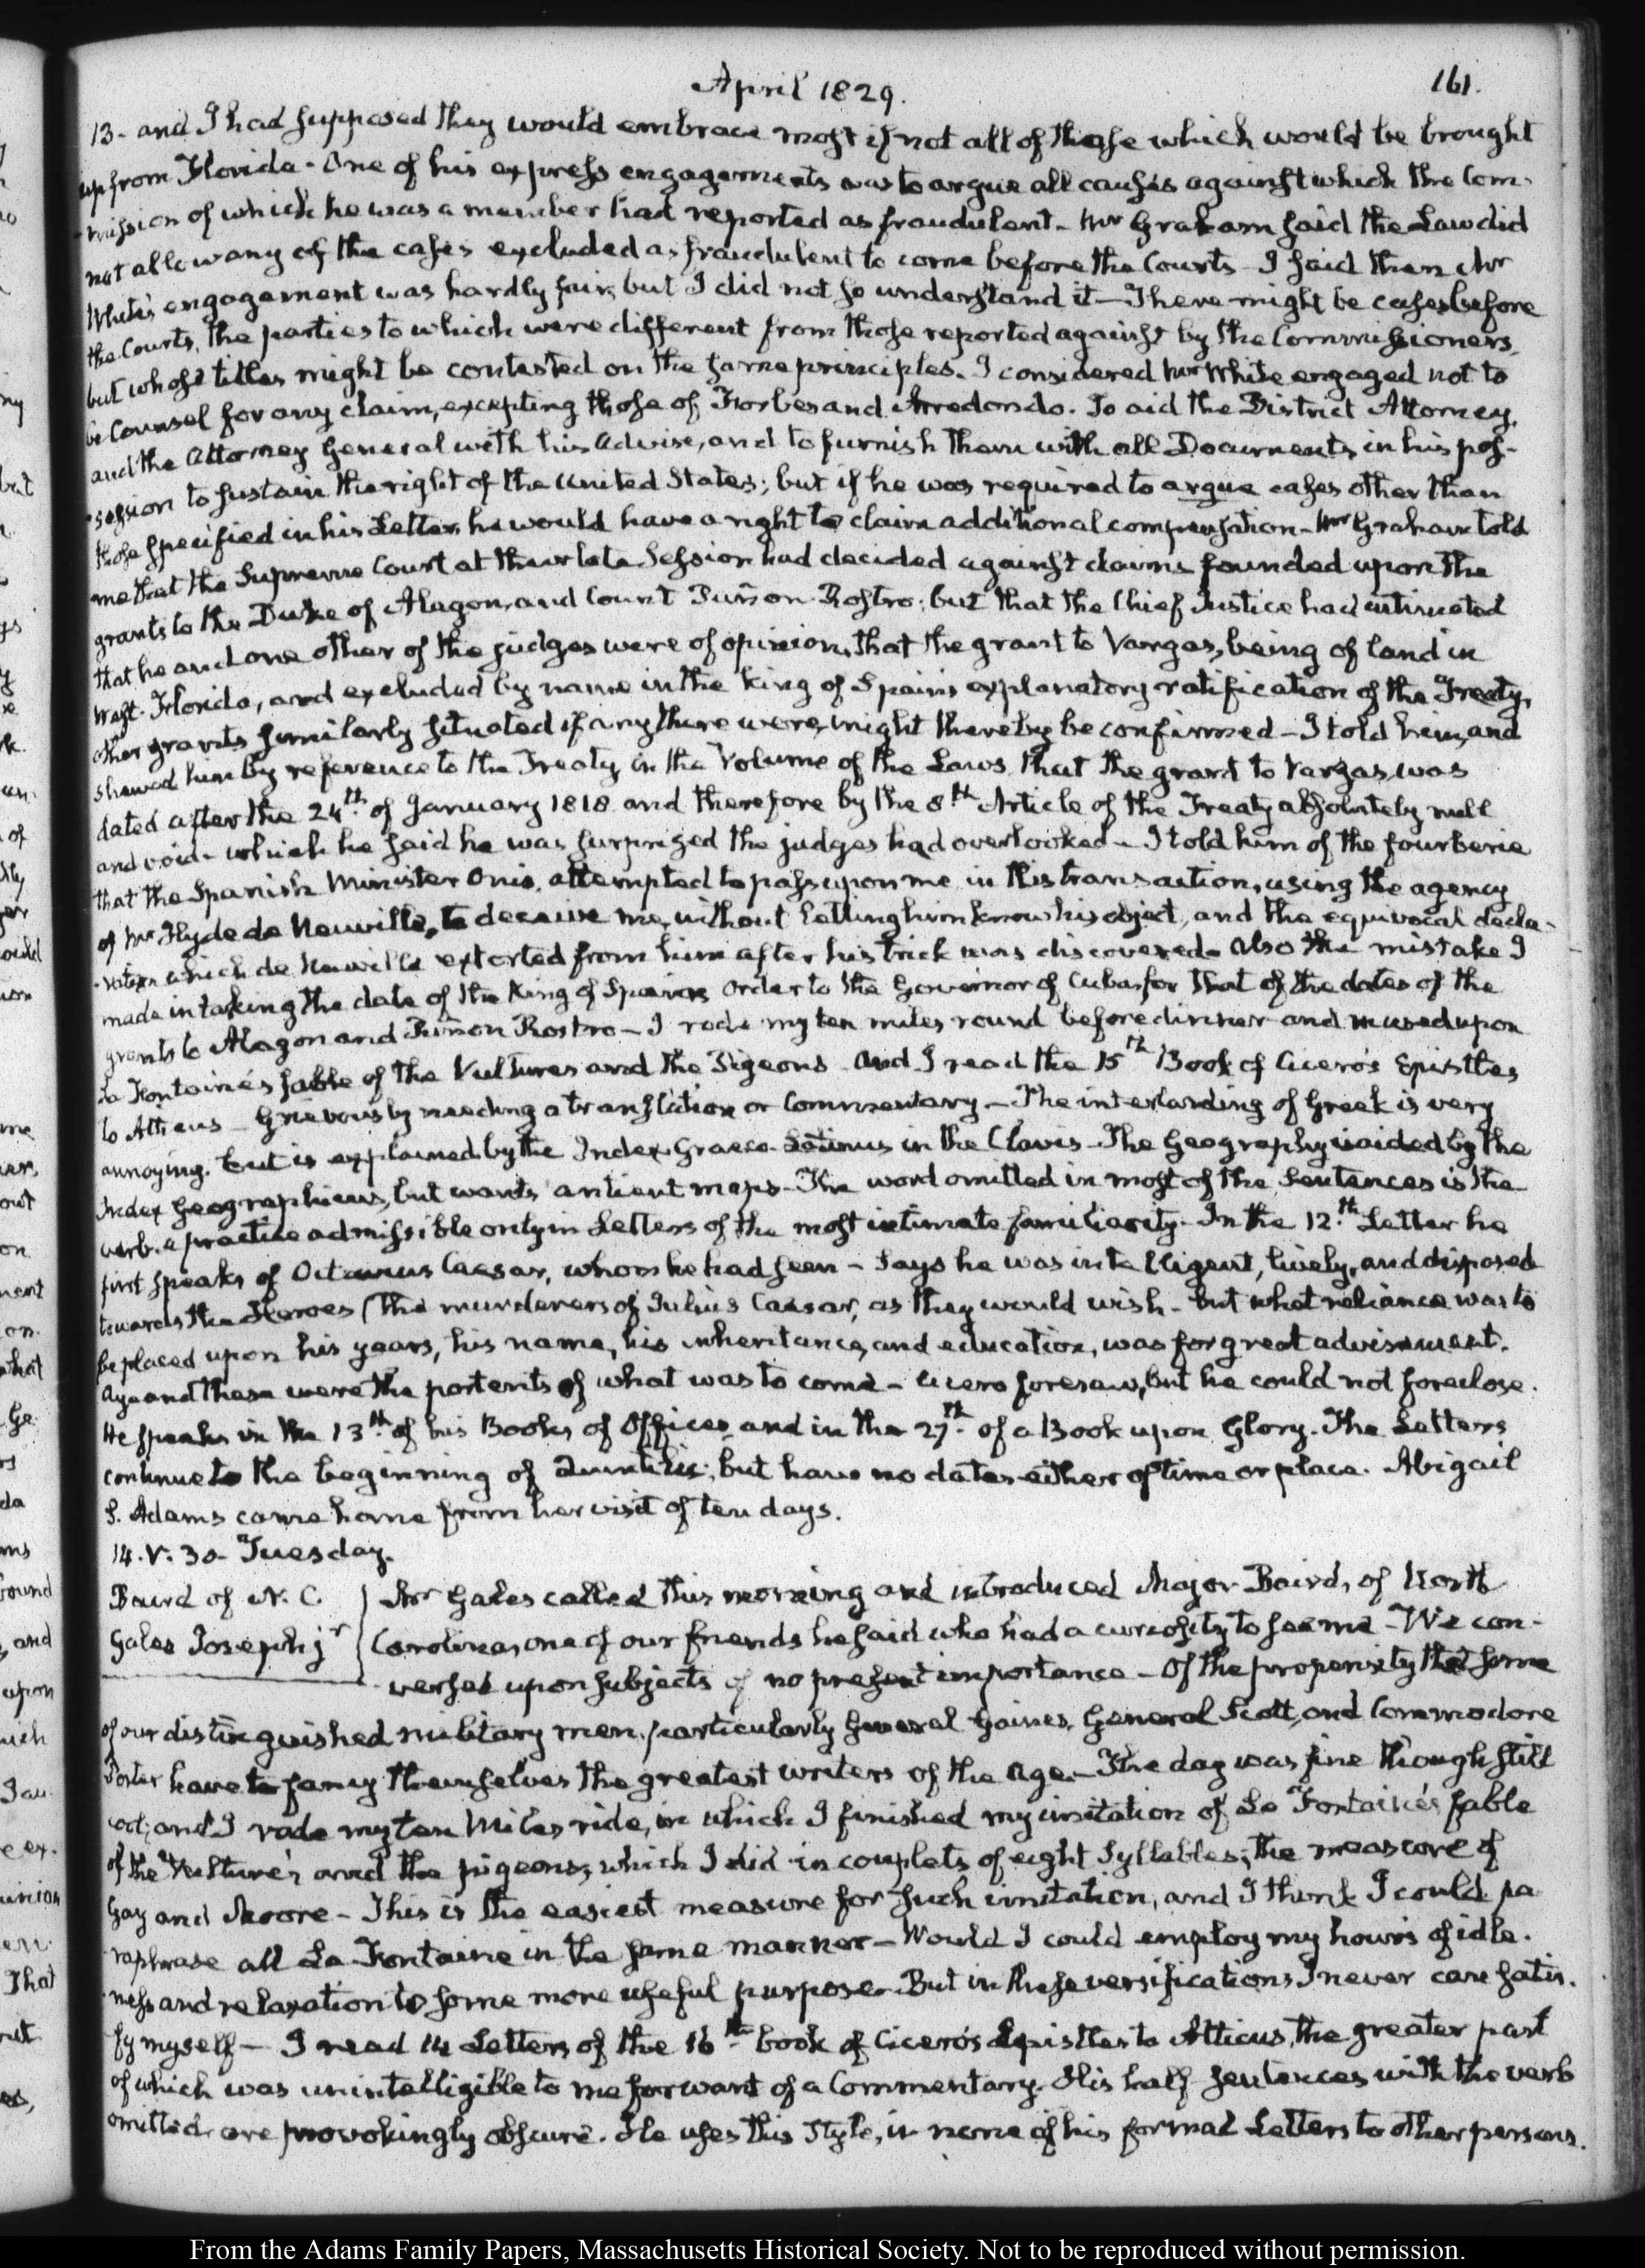 April 1829.
161.
13- and I had supposed they would embrace most if not all of those which would be brought
up from Florida - One of his express engagements was to argue all causes against which the Com-
-mission of which he was a member had reported as fraudulent - Mr Graham said the Law did
not allow any of the cases excluded as fraudulent to come before the Courts - I said then Mr
White's engagement was hardly fair, but I did not so understand it - There might be cases before
the Courts, the parties to which were different from those reported against by the Commissioners,
but whose titles might be contested on the same principles. I considered Mr White engaged not to
be Counsel for any claim, excepting those of Forbes and Arredondo. To aid the District Attorney,
and the Attorney General with his advise, and to furnish them with all Documents in his pos-
-session to sustain the right of the United States; but if he was required to argue cases other than
those specified in his Letter, he would have a right to claim additional compensation - Mr Graham told
me that the Supreme Court at their late Session had decided against claims founded upon the
grants to the Duke of Alagon, and Count Puñon Rostro; but that the Chief Justice had intimated
that he and one other of the judges were of opinion, that the grant to Vargas, being of land in
West-Florida, and excluded by name in the King of Spain's explanatory ratification of the Treaty,
other grants similarly situated if any there were, might thereby be confirmed - I told him, and
shewed him by reference to the Treaty, in the Volume of the Laws that the grant to Vargas, was
dated after the 24th. of January 1818 and therefore by the 8th Article of the Treaty absolutely null
and void - which he said he was surprized the judges had overlooked - I told him of the fourberie
that the Spanish Minister Onis, attempted to pass upon me in this transaction, using the agency
of Mr Hyde de Neuville, to deceive me, without letting him know his object, and the equivocal decla-
-ration which de Neuville extorted from him after his trick was discovered - Also the mistake I
made in taking the date of the King of Spain's Order to the Governor of Cuba, for that of the dates of the
grants to Alagon and Puñon Rostro - I rode my ten miles round before dinner and mused upon
La Fontaine's fable of the Vultures and the Pigeons - And I read the 15th Book of Cicero's Epistles
to Atticus - Grievously needing a translation or Commentary - The interlarding of Greek is very
annoying, but is explained by the Index Graeco-Latinus in the Clavis - The Geography is aided by the
Index Geographicus, but wants antient maps - The word omitted in most of the Sentences is the
verb. a practice admissible only in Letters of the most intimate familiarity. In the 12th. Letter he
first speaks of Octavius Caesar, whom he had seen - Says he was intelligent, lively, and disposed
towards the Heroes (the murderers of Julius Caesar, as they would wish - but what reliance was to
be placed upon his years, his name, his inheritance, and education, was for great advisement.
Aye and these were the portents of what was to come - Cicero foresaw, but he could not foreclose.
He speaks in the 13th. of his Books of Offices, and in the 27th. of a Book upon Glory. The Letters
continue to the beginning of Quintilis; but have no dates either of time or place. Abigail
S. Adams came home from her visit of ten days.
14. V: 30- Tuesday.
Baird of N. C.
Gales Joseph jr
Mr Gales called this morning and introduced Major Baird, of North
Carolina, one of our friends he said who had a curiosity to see me - We con-
-versed upon subjects of no present importance - Of the propensity that some
of our distinguished military men, particularly General Gaines, General Scott, and Commodore
Porter have to fancy themselves the greatest writers of the age. - The day was fine though still
cool; and I rode my ten Miles ride, in which I finished my imitation of La Fontaine's fable
of the Vultures and the pigeons; which I did in couplets of eight Syllables; the measure of
Gay and Moore - This is the easiest measure for such imitation, and I think I could pa-
-raphrase all La Fontaine in the same manner - Would I could employ my hours of idle-
-ness and relaxation to some more useful purpose. But in these versifications, I never can satis-
fy myself - I read 14 Letters of the 16th book of Cicero's Epistles to Atticus, the greater part
of which was unintelligible to me for want of a Commentary. His half sentences with the verb
omitted, are provokingly obscure. He uses this Style, in none of his formal Letters to other persons.
From the Adams Family Papers, Massachusetts Historical Society. Not to be reproduced without permission.